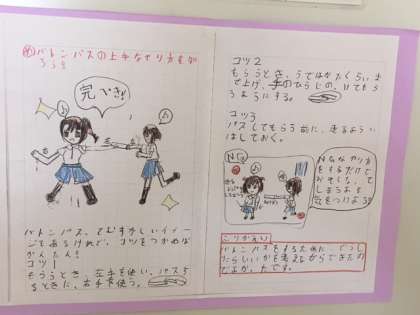 めバトンパスの上手なやり方を知ろう!!
完ぺき!!
バトンパス、てむずかしいイメー
ジもあるけれど、コツをつかめば
かんたん!
コツ1
もらうとき、左手を使い、パスす
るときに、右手を使う。
コツ2
もらうとき、うではかたくらいま
で上げ、手の
ようにする。
コツ3
パスしてもらう前に、走るよう
はしておく。
NG
NGなやり方
をするだけで
おそくなって
しまうよ!
気をつけよう!!
ふりかえり
バトンパスをするために、どうし
たらいいかを考えながらできたの
でよかったです。